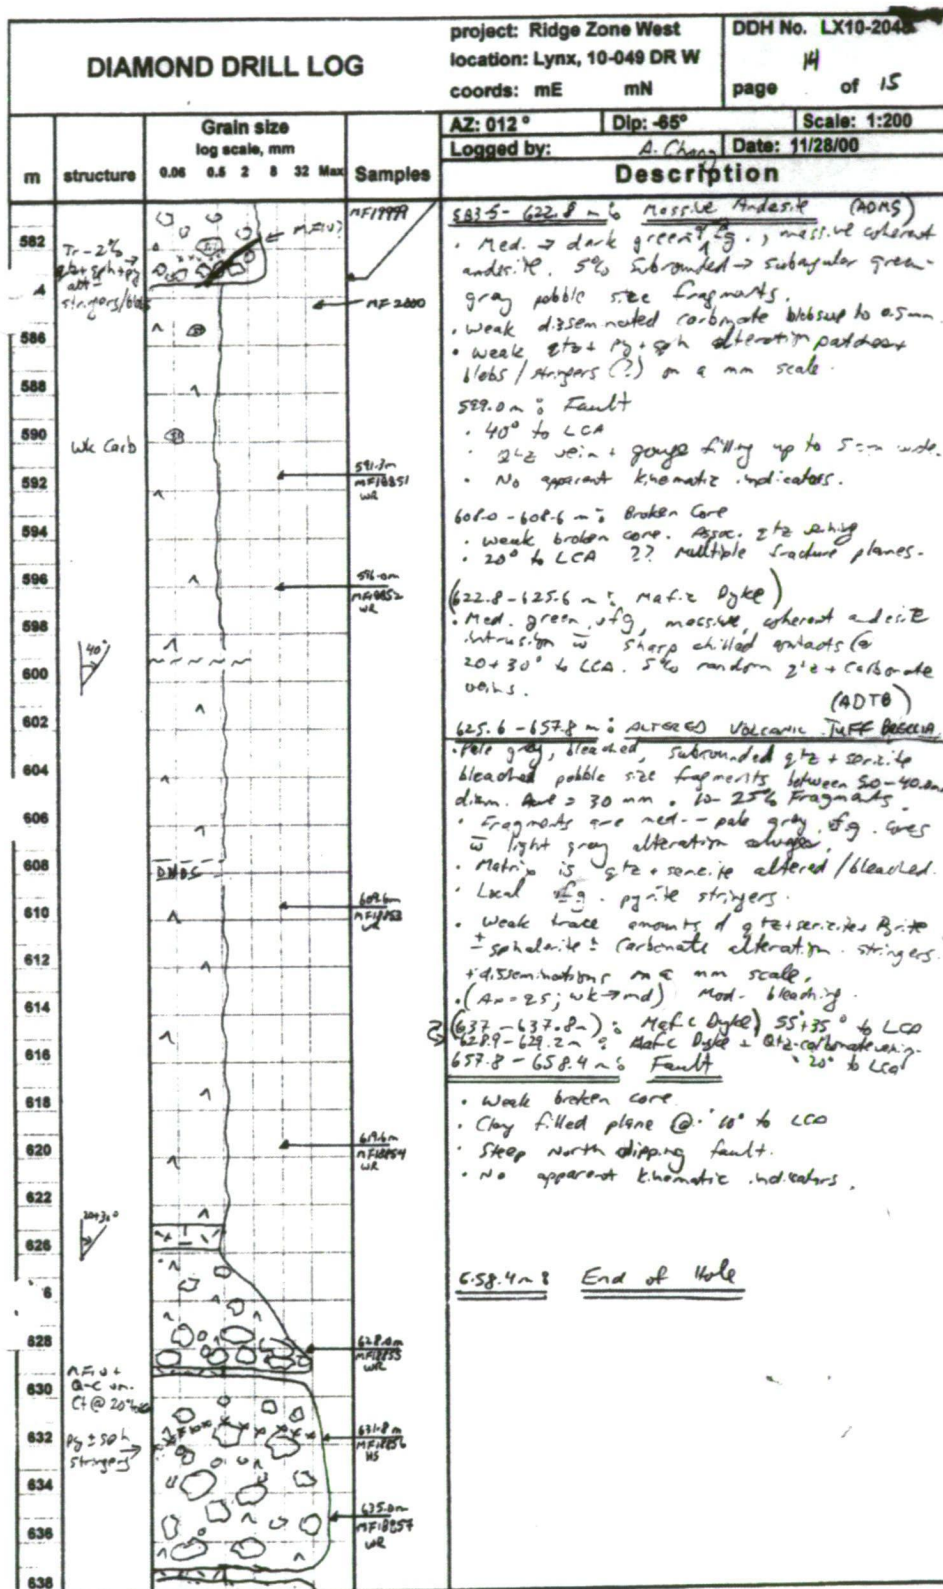 DIAMOND DRILL LOG
project: Ridge Zone West
location: Lynx, 10-049 DR W
coords: mE mN
DDH No. LX10-204
14
page of 15
m
structure
Grain size
log scale, mm
0.06 0.5 2 8 32 Max
Samples
AZ: 012 °
Dip: -65°
Scale: 1:200
Logged by: A. Chang
Date: 11/28/00
Description
582
586
588
590
592
594
596
598
600
602
604
606
608
610
612
614
616
618
620
622
626
6
628
630
632
634
636
638
Tr - 2%
qtz + sph + py
alt
stringers/blebs
Wk Carb
40°
20+30°
Q-C vn.
Ct @ 20°
py ± sph
stringers
MF19999
MF 2000
591.3m
MF18851
WR
596.0m
MF18852
WR
609.6m
MF18853
WR
619.6m
MF18854
WR
628.0m
MF18855
WR
631.8m
MF18856
HS
635.0m
MF18857
WR
583.5 - 622.8 m: Massive Andesite (ADMS)
• Med. → dark green, fg., massive coherent
andesite. 5% subrounded → subangular green-
gray pebble size fragments.
• Weak disseminated carbonate blebs up to 0.5mm.
• Weak qtz + py + sph alteration patches +
blebs / stringers (?) on a mm scale.
599.0 m: Fault
• 40° to LCA
• Qtz vein + gouge filling up to 5 cm wide.
• No apparent kinematic indicators.
608.0 - 608.6 m: Broken Core
• weak broken core. Assoc. qtz veining
• 20° to LCA ?? Multiple fracture planes.
(622.8 - 625.6 m: Mafic Dyke)
• Med. green, vfg, massive, coherent andesite
intrusion w̄ sharp chilled contacts @
20+30° to LCA. 5% random qtz + carbonate
veins.
(ADTB)
625.6 - 657.8 m: ALTERED VOLCANIC TUFF BRECCIA
• Pale gray, bleached, subrounded qtz + sericite
bleached pebble size fragments between
diam. = 30 mm. 10-25% Fragments.
• Fragments are med. - pale gray vfg. cores
w̄ light gray alteration
• Matrix is qtz + sericite altered / bleached.
• Local vfg. pyrite stringers.
• Weak trace amounts of qtz + sericite + Pyrite
± sphalerite ± carbonate alteration stringers
+ disseminations on a mm scale.
• (AN = 25; wk → md) Mod. bleaching.
(637 - 637.8m): Mafic Dyke) 55+35° to LCA
628.9 - 629.2 m: Mafic Dyke + Qtz-carbonate vein.
20° to LCA
657.8 - 658.4 m: Fault
• Weak broken core.
• Clay filled plane @ 10° to LCA
• Steep North dipping fault.
• No apparent kinematic indicators.
658.4 m: End of Hole